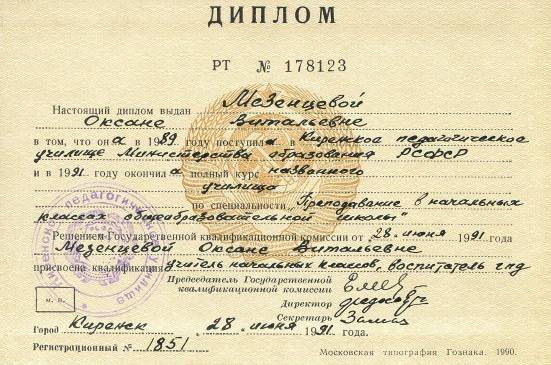 ДИПЛОМ
РТ № 178123
Настоящий диплом выдан Мезенцевой
Оксане Витальевне
в том, что она в 1989 году поступила в Киренское педагогическое
училище Министерства образования РСФСР
и в 1991 году окончила полный курс названного
училища
по специальности „Преподавание в начальных
классах общеобразовательной школы"
Решением Государственной квалификационной комиссии от 28 июня 1991 года
Мезенцевой Оксане Витальевне
присвоена квалификация учитель начальных классов, воспитатель гпд
Председатель Государственной
квалификационной комиссии
Директор
Секретарь
М. П.
Город Киренск 28 июня 1991 года.
Регистрационный № 1851
Московская типография Гознака. 1990.